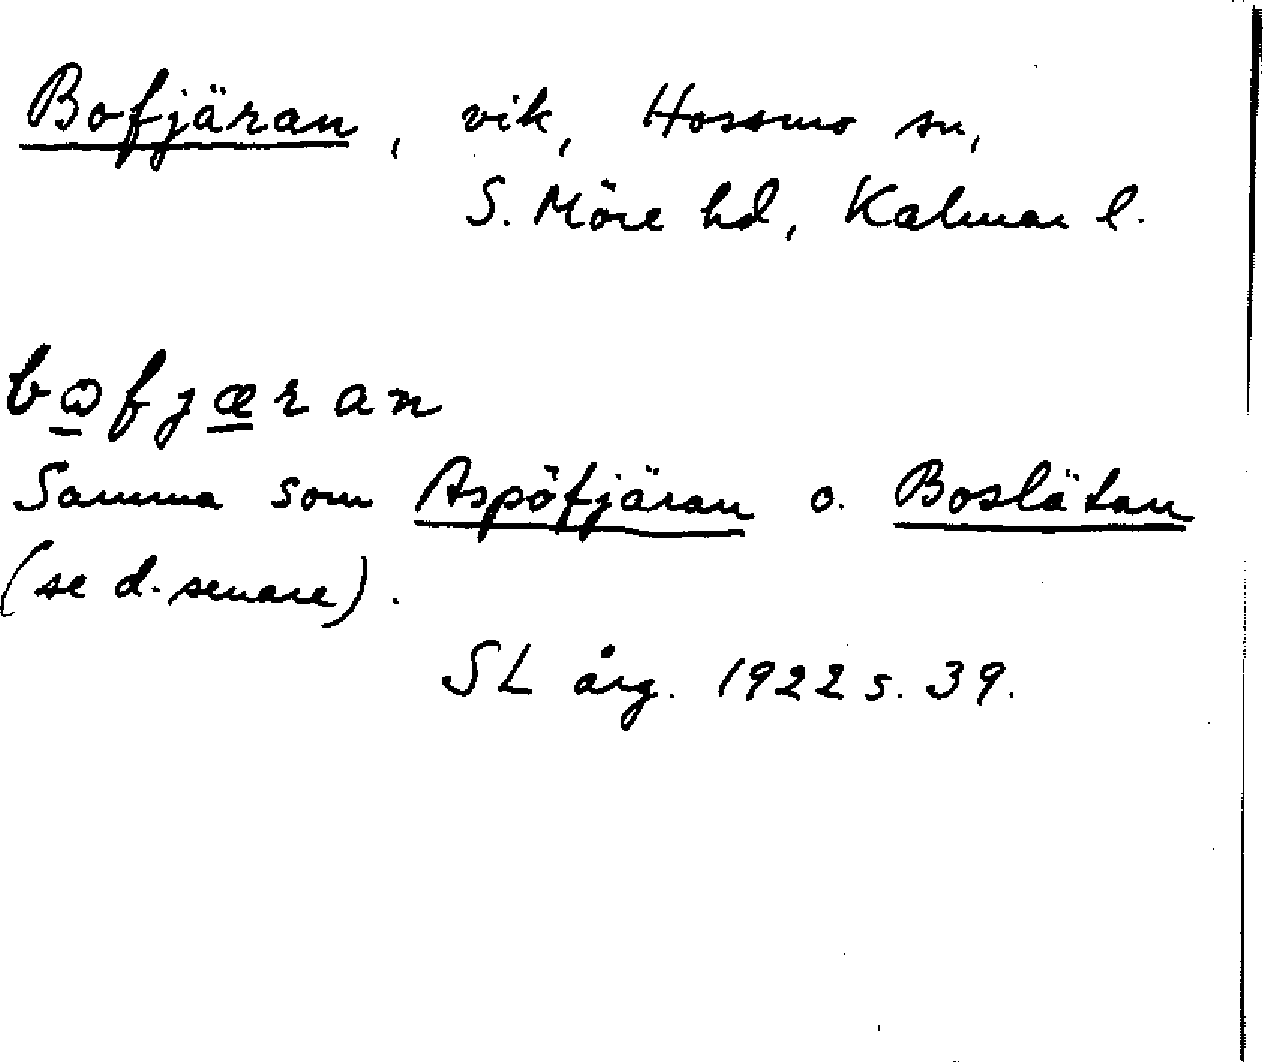 Bofjäran, vik, Hossmo sn,
S. Möre hd, Kalmar l.
bꙍfjæran
Samma som Aspöfjäran o. Boslätan
(se d. senare).
SL årg. 1922 s. 39.